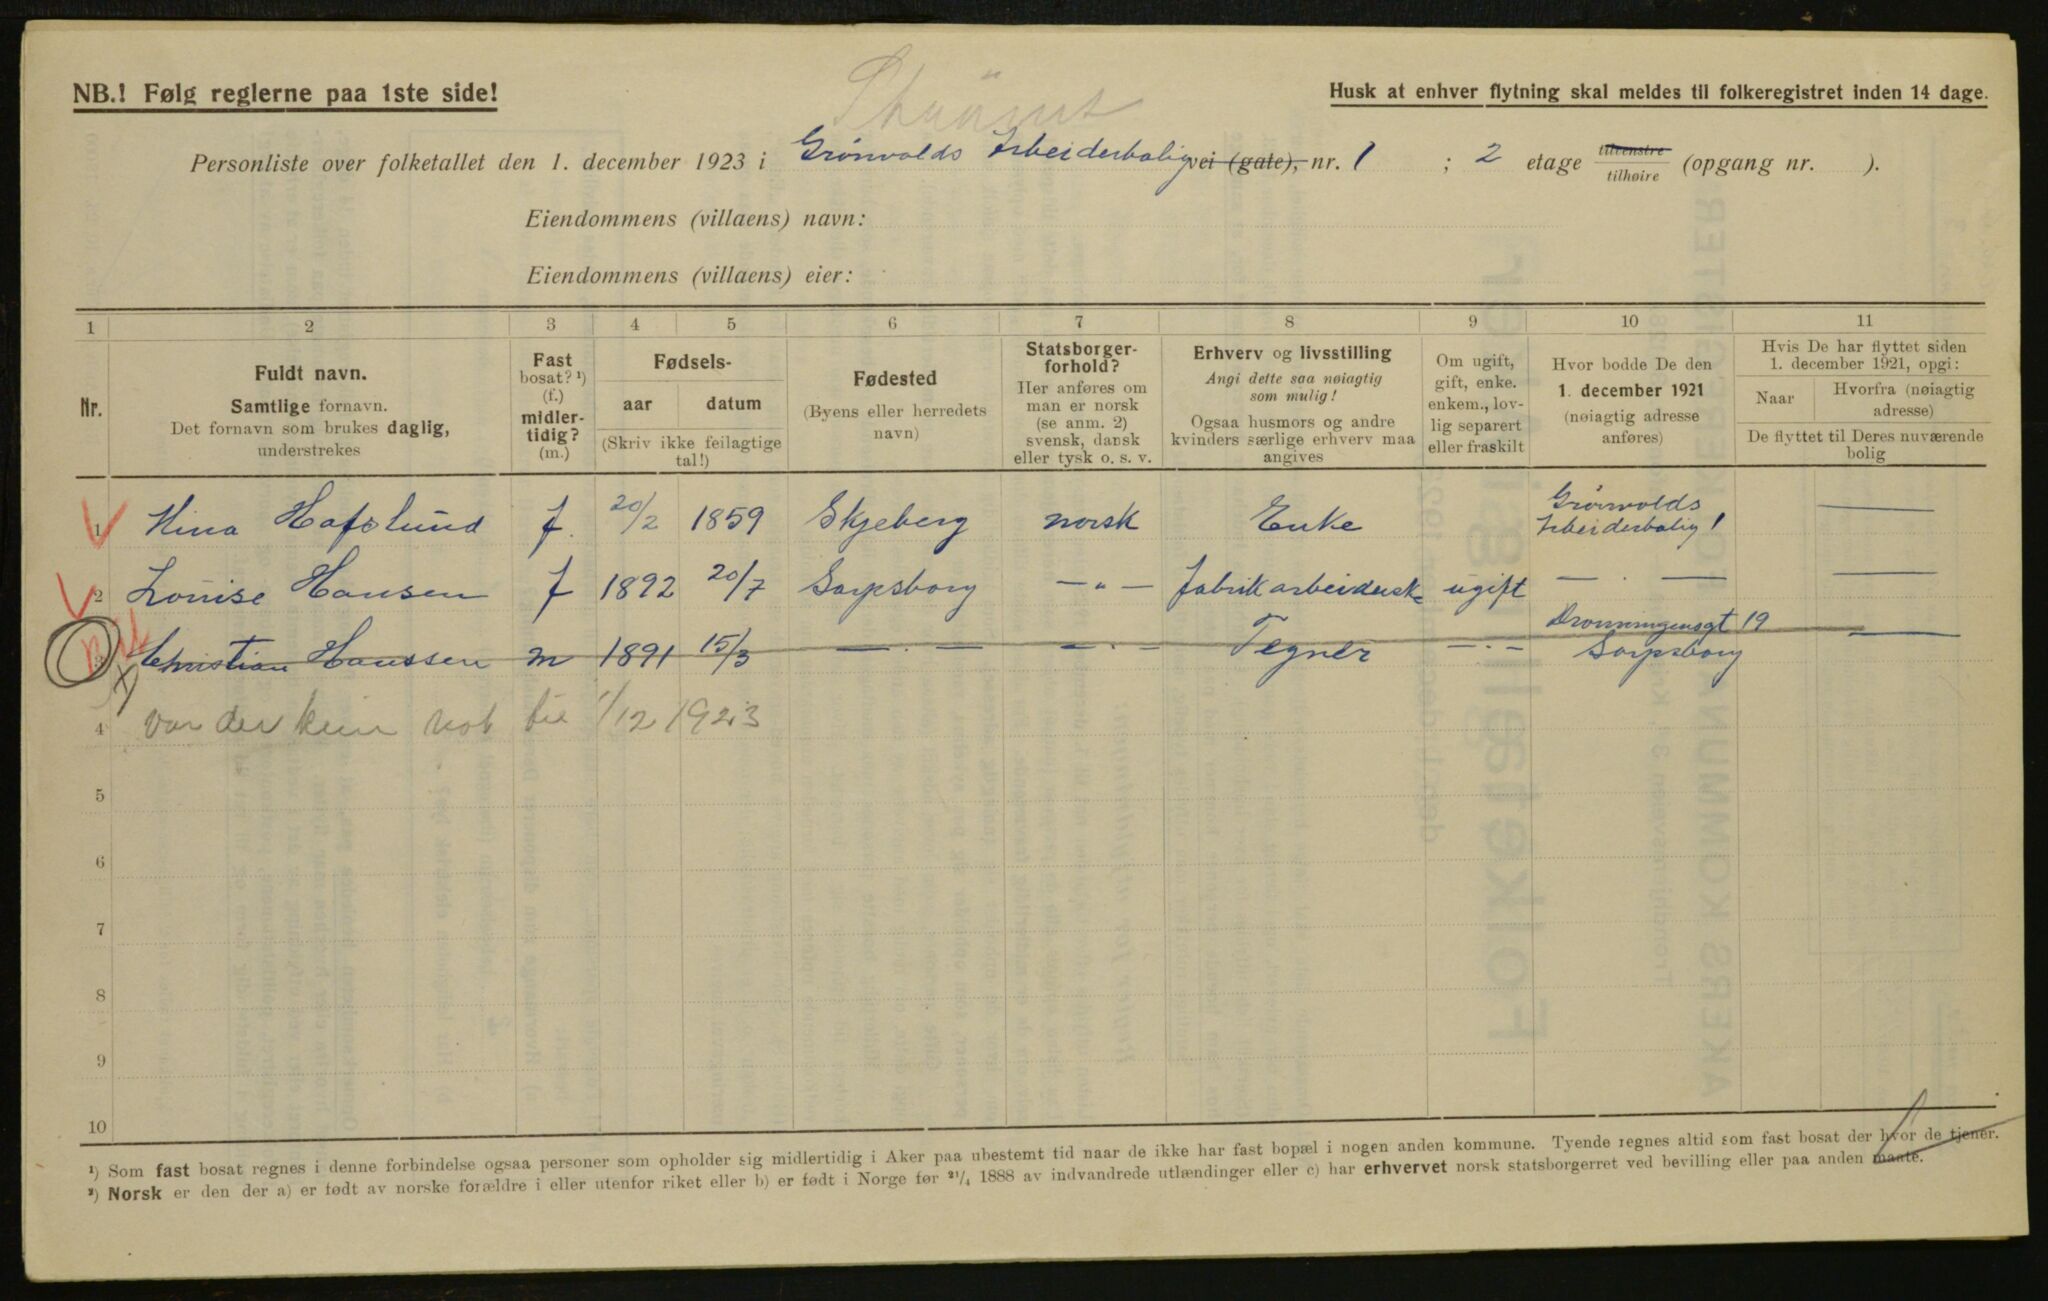 NB.! Følg reglerne paa 1ste side!
Husk at enhver flytning skal meldes til folkeregistret inden 14 dage.
Personliste over folketallet den 1. december 1923 i Grönvolds Arbeiderbolig vei (gate), nr. 1 ; 2 etage tilvenstre tilhøire (opgang nr. ).
Eiendommens (villaens) navn:
Eiendommens (villaens) eier:
1 2 3 4 5 6 7 8 9 10 11
Nr.
Fuldt navn.
Samtlige fornavn.
Det fornavn som brukes daglig,
understrekes
Fast
bosat? ¹)
(f.)
midler-
tidig?
(m.)
Fødsels-
aar datum
(Skriv ikke feilagtige
tal!)
Fødested
(Byens eller herredets
navn)
Statsborger-
forhold?
Her anføres om
man er norsk
(se anm. 2)
svensk, dansk
eller tysk o. s. v.
Erhverv og livsstilling
Angi dette saa nøiagtig
som mulig!
Ogsaa husmors og andre
kvinders særlige erhverv maa
angives
Om ugift,
gift, enke.
enkem., lov-
lig separert
eller fraskilt
Hvor bodde De den
1. december 1921
(nøiagtig adresse
anføres)
Hvis De har flyttet siden
1. december 1921, opgi:
Naar
Hvorfra (nøiagtig
adresse)
De flyttet til Deres nuværende
bolig
1 Hina Hafslund f. 20/2 1859 Skjeberg norsk Enke Grönvolds Arbeiderbolig 1 —
2 Louise Hansen f 1892 20/7 Sarpsborg — " — fabrikarbeiderske ugift — . — —
3 Christian Hanssen m 1891 15/3 — . — — . — Tegner — . — Dronningensgt 19 Sarpsborg —
4 var der kun til 1/12 1923
5
6
7
8
9
10
¹) Som fast bosat regnes i denne forbindelse ogsaa personer som opholder sig midlertidig i Aker paa ubestemt tid naar de ikke har fast bopæl i nogen anden kommune. Tyende regnes altid som fast bosat der hvor de tjener.
²) Norsk er den der a) er født av norske forældre i eller utenfor riket eller b) er født i Norge før ²¹/₄ 1888 av indvandrede utlændinger eller c) har erhvervet norsk statsborgerret ved bevilling eller paa anden maate.